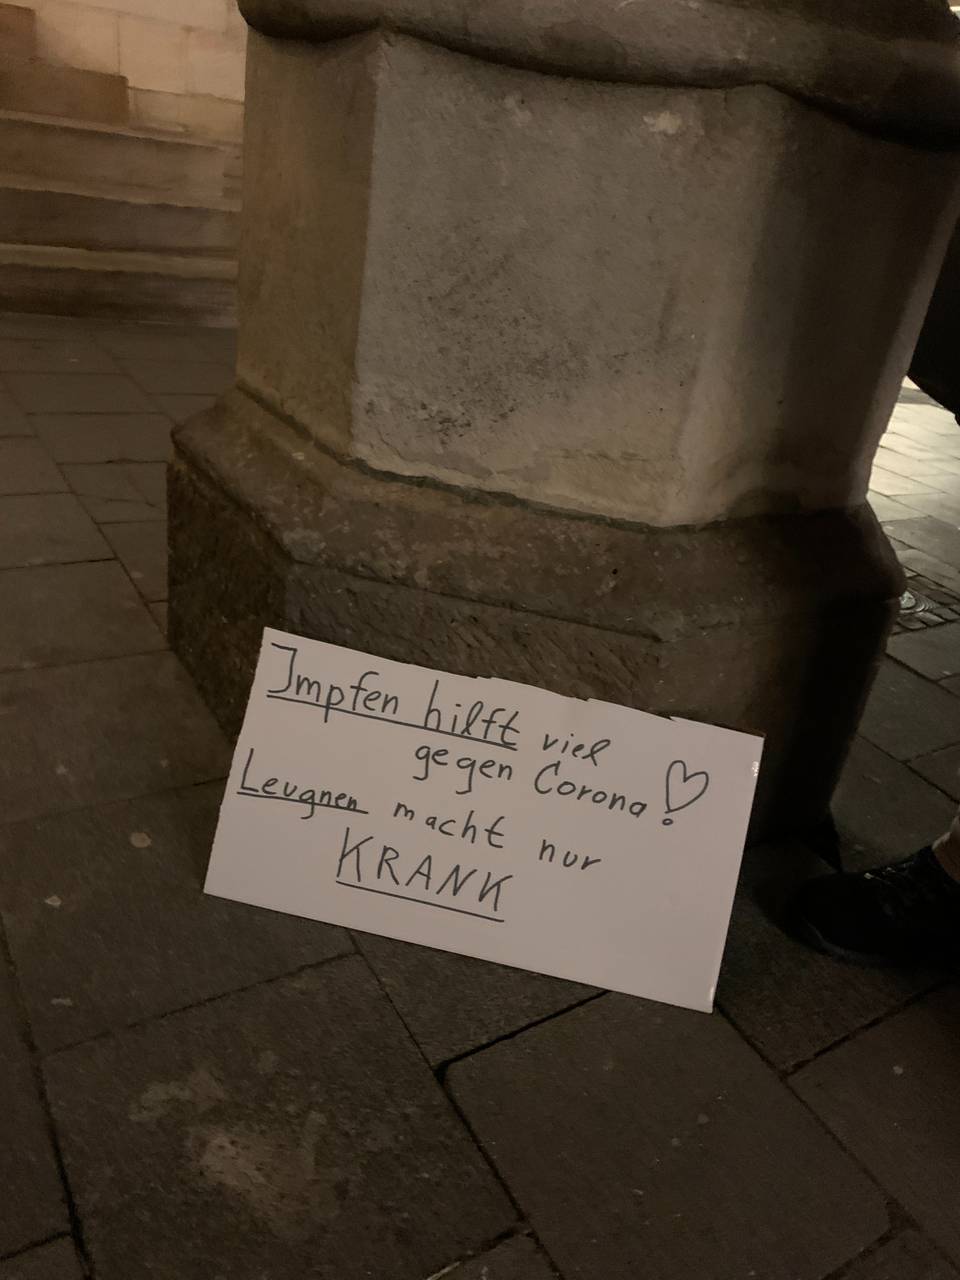 Impfen hilft viel
gegen Corona!
Leugnen macht nur
KRANK